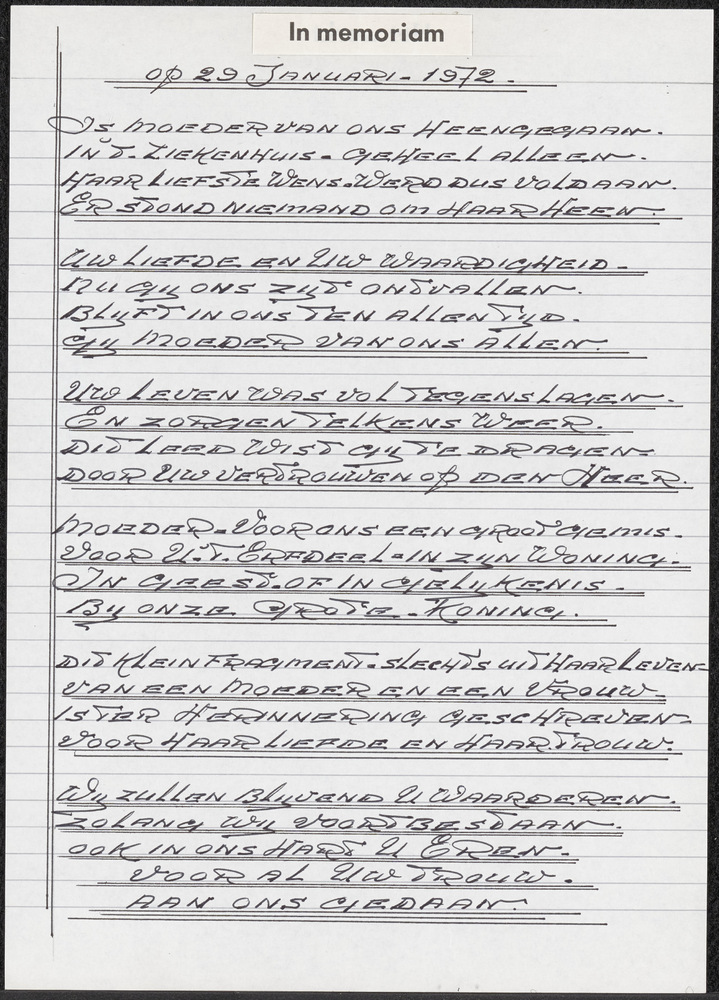 In memoriam
op 29 JANUARI - 1972.
IS MOEDER VAN ONS HEENGEGAAN.
IN 'T. ZIEKENHUIS - GEHEEL ALLEEN.
HAAR LIEFSTE WENS. WERD DUS VOLDAAN.
ER STOND NIEMAND OM HAAR HEEN.
UW LIEFDE EN UW WAARDIGHEID -
NU GIJ ONS ZIJT ONTVALLEN.
BLIJFT IN ONS TEN ALLEN TIJD.
GIJ MOEDER VAN ONS ALLEN.
UW LEVEN WAS VOL TEGENSLAGEN.
EN ZORGEN TELKENS WEER.
DIT LEED WIST GIJ TE DRAGEN
DOOR UW VERTROUWEN OP DEN HEER.
MOEDER - VOOR ONS EEN GROOT GEMIS.
VOOR U. 'T. ERFDEEL - IN ZIJN WONING.
IN GEEST. OF IN GELIJKENIS.
BIJ ONZE GROTE - KONING.
DIT KLEIN FRAGMENT. SLECHTS UIT HAAR LEVEN
VAN EEN MOEDER EN EEN VROUW
IS TER HERINNERING GESCHREVEN
VOOR HAAR LIEFDE EN HAAR TROUW.
WIJ ZULLEN BLIJVEND U WAARDEREN.
ZOLANG WIJ VOORTBESTAAN.
OOK IN ONS HART U EREN.
VOOR AL UW TROUW.
AAN ONS GEDAAN.